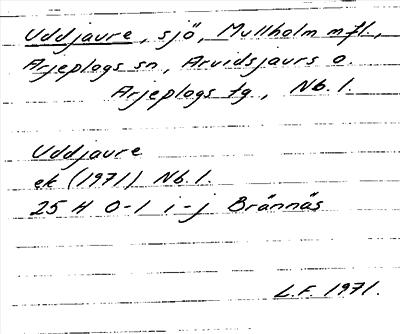 Uddjaure, sjö, Mullholm m fl.,
Arjeplogs sn, Arvidsjaurs o.
Arjeplogs tg., Nb. l.
Uddjaure
ek (1971) Nb. l.
25 H 0-1 i-j Brännäs
L.F. 1971.